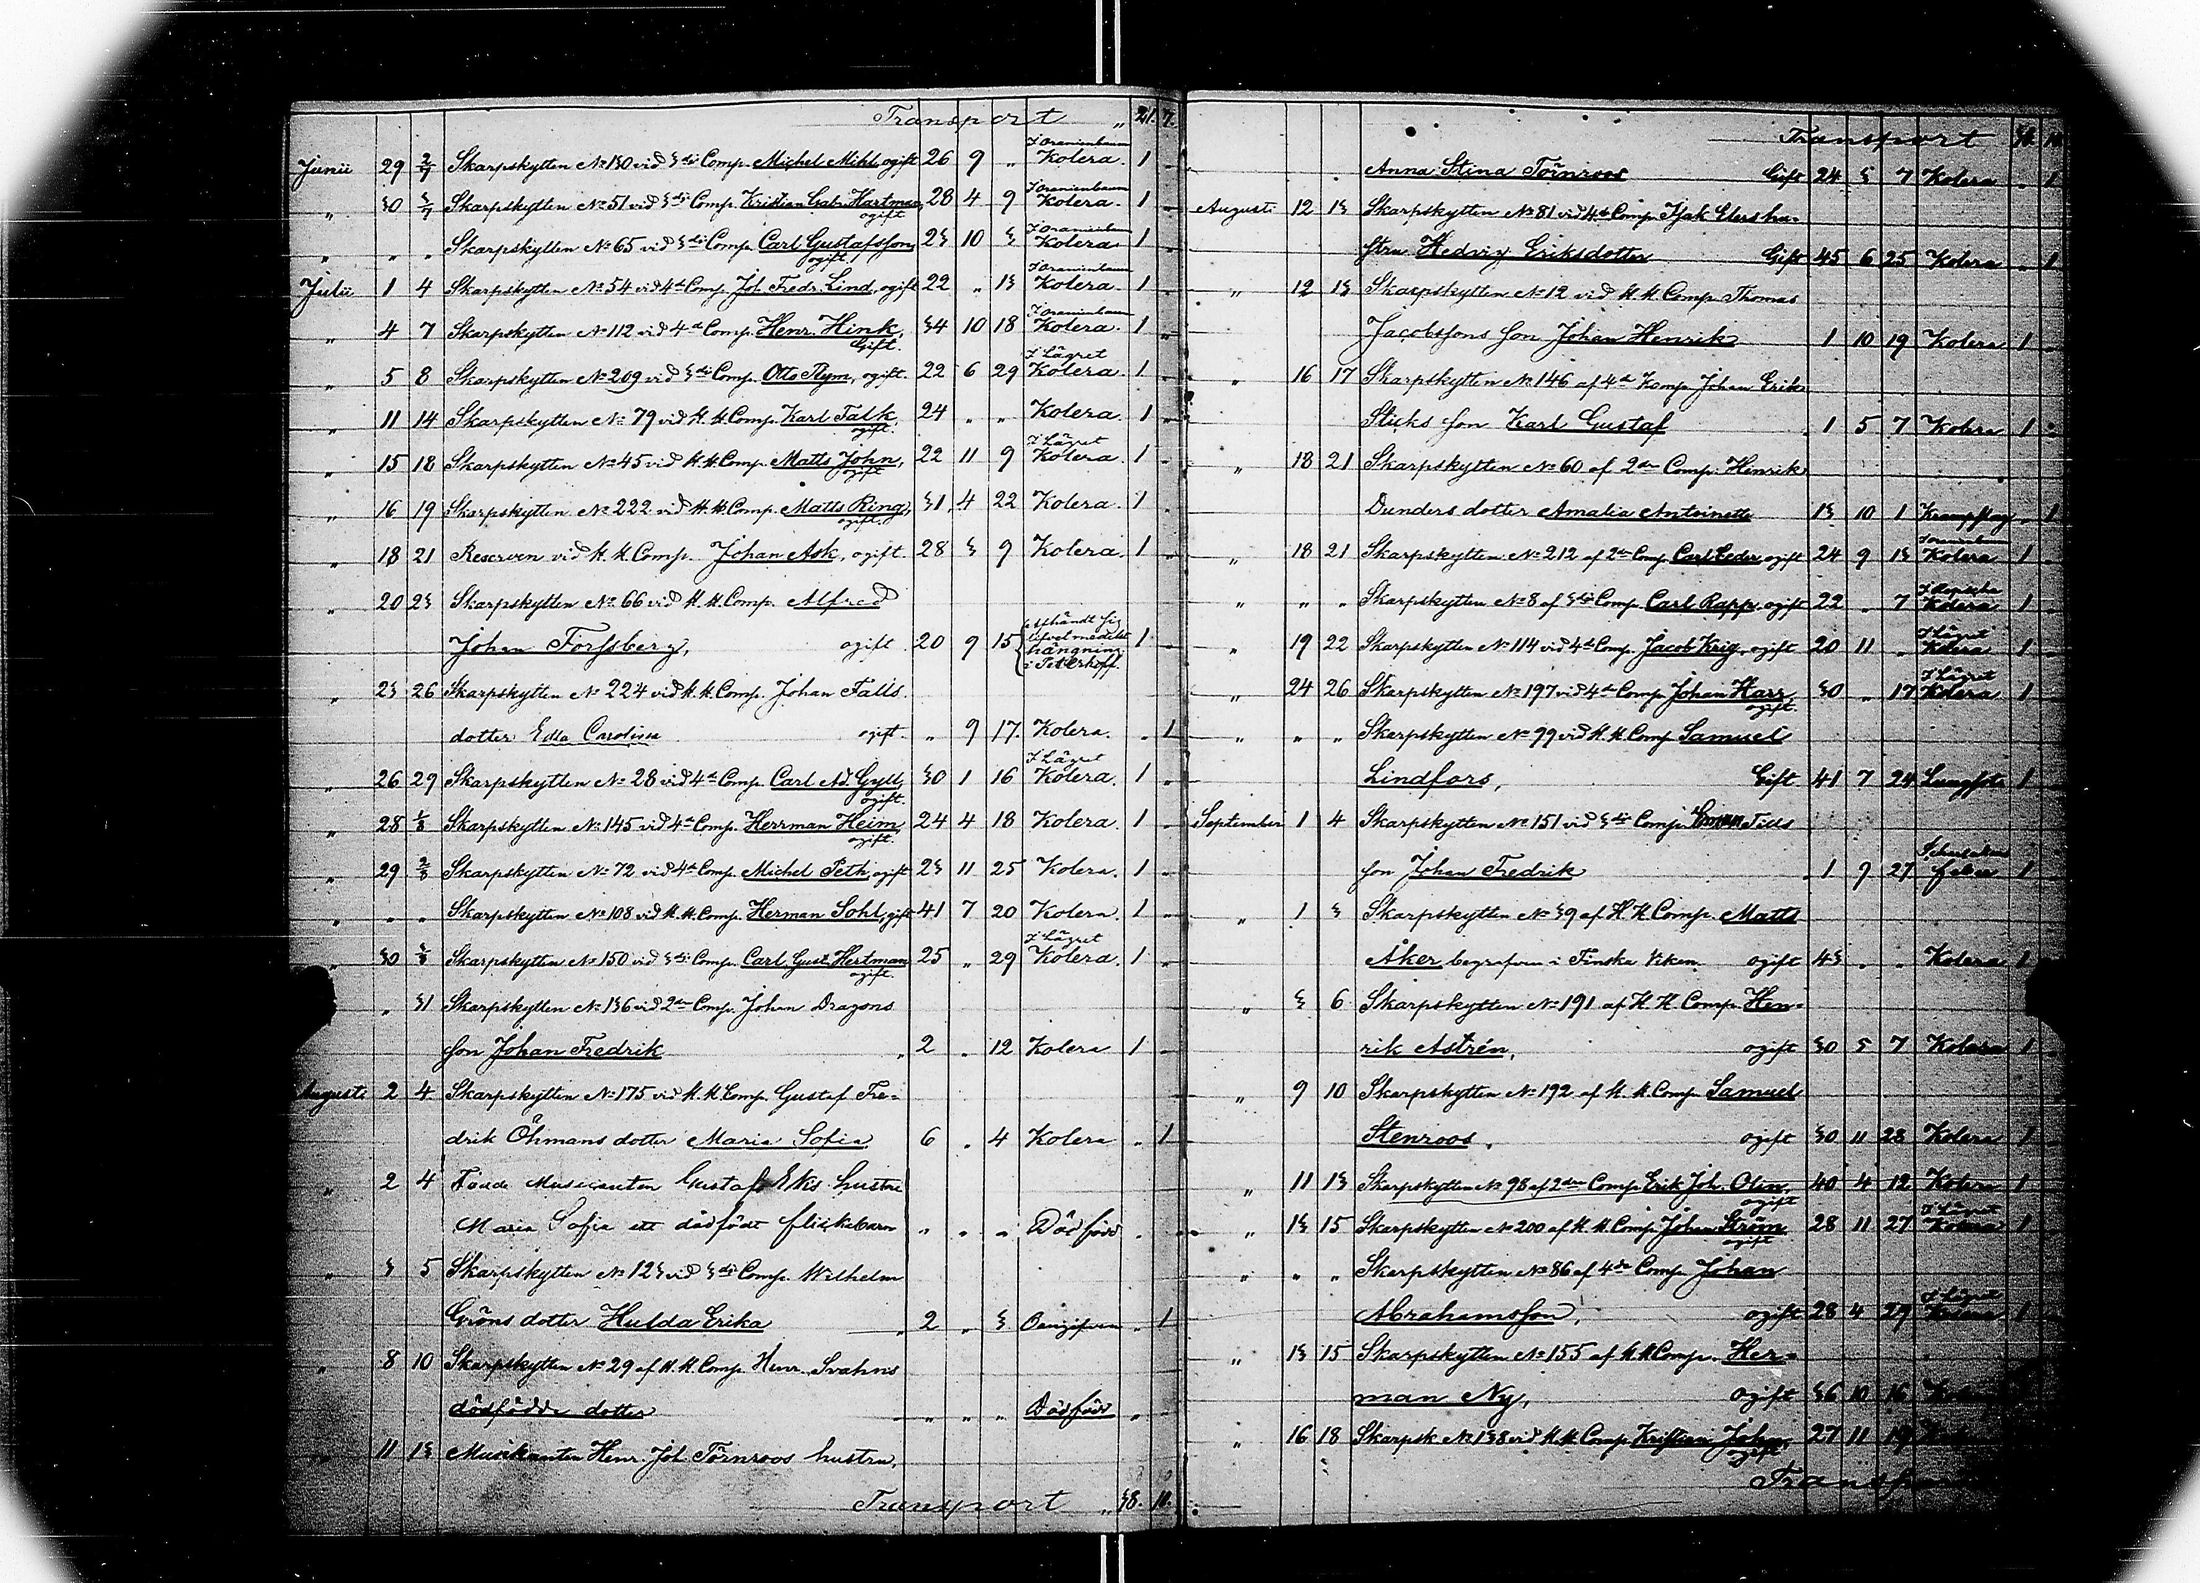 Transport „ 21. 7.
Junii 29 2/7 Skarpskytten No 130 vid 3die Comp. Michel Mihl, ogift 26 9 „ I Oranienbaum Kolera. 1
„ 30 3/7 Skarpskytten No 51 vid 3die Comp. Kristian Gabr. Hartman, ogift 28 4 9 I Oranienbaum Kolera. 1
„ „ „ Skarpskytten No 65 vid 3die Comp. Carl Gustafsson, ogift 23 10 3 I Oranienbaum Kolera 1
Julii 1 4 Skarpskytten No 54 vid 4de Comp. Joh. Fredr. Lind, ogift 22 „ 13 I Oranienbaum Kolera 1
„ 4 7 Skarpskytten No 112 vid 4de Comp. Henr. Hink, Gift. 34 10 18 I Oranienbaum Kolera. 1
„ 5 8 Skarpskytten No 209 vid 3die Comp. Otto Rym, ogift. 22 6 29 I Lägret Kolera. 1
„ 11 14 Skarpskytten No 79 vid H. H. Comp. Karl Falk, ogift. 24 „ „ Kolera. 1
„ 15 18 Skarpskytten No 45 vid H. H. Comp. Matts John, ogift 22 11 9 I Lägret Kolera. 1
„ 16 19 Skarpskytten No 222 vid H. H. Comp. Matts Ring, ogift. 31 4 22 Kolera. 1
„ 18 21 Reserven vid H. H. Comp. Johan Ask, ogift. 28 3 9 Kolera. 1
„ 20 23 Skarpskytten No 66 vid H. H. Comp. Alfred
Johan Forssberg, ogift 20 9 15 Afhändt sig lifvet medelst hängning i Peterhoff 1
„ 23 26 Skarpskytten No 224 vid H. H. Comp. Johan Falls
dotter Edla Carolina ogift. „ 9 17. Kolera. „ 1
„ 26 29 Skarpskytten No 28 vid 4de Comp. Carl Ad. Gyll, ogift. 30 1 16 I Lägret Kolera. 1
„ 28 1/8 Skarpskytten No 145 vid 4de Comp. Herrman Heim, ogift. 24 4 18 Kolera. 1
„ 29 2/8 Skarpskytten No 72 vid 4de Comp. Michel Peth, ogift 23 11 25 Kolera. 1
„ „ „ Skarpskytten No 108 vid H. H. Comp. Herman Sohl, gift 41 7 20 Kolera. 1
„ 30 3/8 Skarpskytten No 150 vid 3die Comp. Carl Gust. Hertman ogift. 25 „ 29 I Lägret Kolera. 1
„ 31 Skarpskytten No 136 vid 2dra Comp. Johan Dragons
son Johan Fredrik „ 2 „ 12 Kolera 1
Augusti 2 4 Skarpskytten No 175 vid H. H. Comp. Gustaf Fre-
drik Öhmans dotter Maria Sofia 6 „ 4 Kolera „ 1
„ 2 4 Musicanten Gustaf Eks hustru
Maria Sofia ett dödfödt flickebarn „ „ „ Dödfödd
„ 3 5 Skarpskytten No 123 vid 3die Comp. Wilhelm
Gröns dotter Hulda Erika „ 2 „ 3 Oangifven „ 1
„ 8 10 Skarpskytten No 29 af H. H. Comp. Henr. Svahns
dödfödde dotter „ „ „ Dödfödd „
„ 11 13 Musikanten Henr. Joh. Törnroos hustru,
Transport „ 38. 10.
Transport 38. 10
Anna Stina Törnroos Gift 24 3 7 Kolera „ 1
Augusti 12 13 Skarpskytten No 81 vid 4de Comp. Isak Elers hu-
stru Hedvig Eriksdotter Gift 45 6 25 Kolera „ 1
„ 12 13 Skarpskytten No 12 vid H. H. Comp. Thomas
Jacobssons son Johan Henrik 1 10 19 Kolera 1
„ 16 17 Skarpskytten No 146 af 4de Komp. Johan Erik
Sticks son Karl Gustaf 1 5 7 Kolera 1
„ 18 21 Skarpskytten No 60 af 2dra Comp. Henrik
Dunders dotter Amalia Antoinette 13 10 1 Krampslag „ 1
„ 18 21 Skarpskytten No 212 af 2dra Comp. Carl Ceder, ogift 24 9 13 I Oranienbaum Kolera 1
„ „ „ Skarpskytten No 8 af 3die Comp. Carl Rapp, ogift 22 „ 7 I Ropscha Kolera 1
„ 19 22 Skarpskytten No 114 vid 4de Comp. Jacob Krig, ogift 20 11 „ I Lägret Kolera 1
„ 24 26 Skarpskytten No 197 vid 4de Comp. Johan Harr, ogift. 30 „ 17 I Lägret Kolera 1
„ „ „ Skarpskytten No 99 vid H. H. Comp. Samuel
Lindfors, Gift 41 7 24 Lungsot 1
September 1 4 Skarpskytten No 151 vid 3die Comp.
son Johan Fredrik 1 9 27 feber 1
„ 1 3 Skarpskytten No 39 af H. H. Comp. Matts
Åker begrafven i Finska Viken ogift 43 „ „ Kolera 1
„ 3 6 Skarpskytten No 191 af H. H. Comp. Hen-
rik Astrén, ogift 30 5 7 Kolera 1
„ 9 10 Skarpskytten No 192 af H. H. Comp. Samuel
Stenroos, ogift 30 11 28 Kolera 1
„ 11 13 Skarpskytten No 98 af 2dra Comp. Erik Joh. Olin, ogift 40 4 12 Kolera 1
„ 13 15 Skarpskytten No 200 af H. H. Comp. Johan Ström ogift 28 11 27 I Lägret Kolera 1
„ „ „ Skarpskytten No 86 af 4de Comp. Johan
Abrahamsson, ogift 28 4 29 I Lägret Kolera 1
„ 13 15 Skarpskytten No 155 af H. H. Comp. Her-
man Ny, ogift 36 10 16
„ 16 18 Skarpsk. No 138 vid H. H. Comp. Kristian John, ogift 27 11 19
Transport